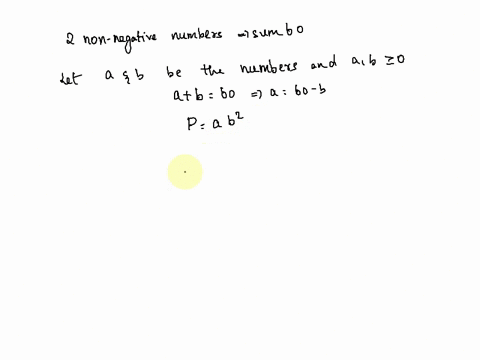 2 non-negative numbers ⇒ sum 60
Let a & b be the numbers and a, b ≥ 0
a + b = 60 ⇒ a = 60 - b
P = a b²